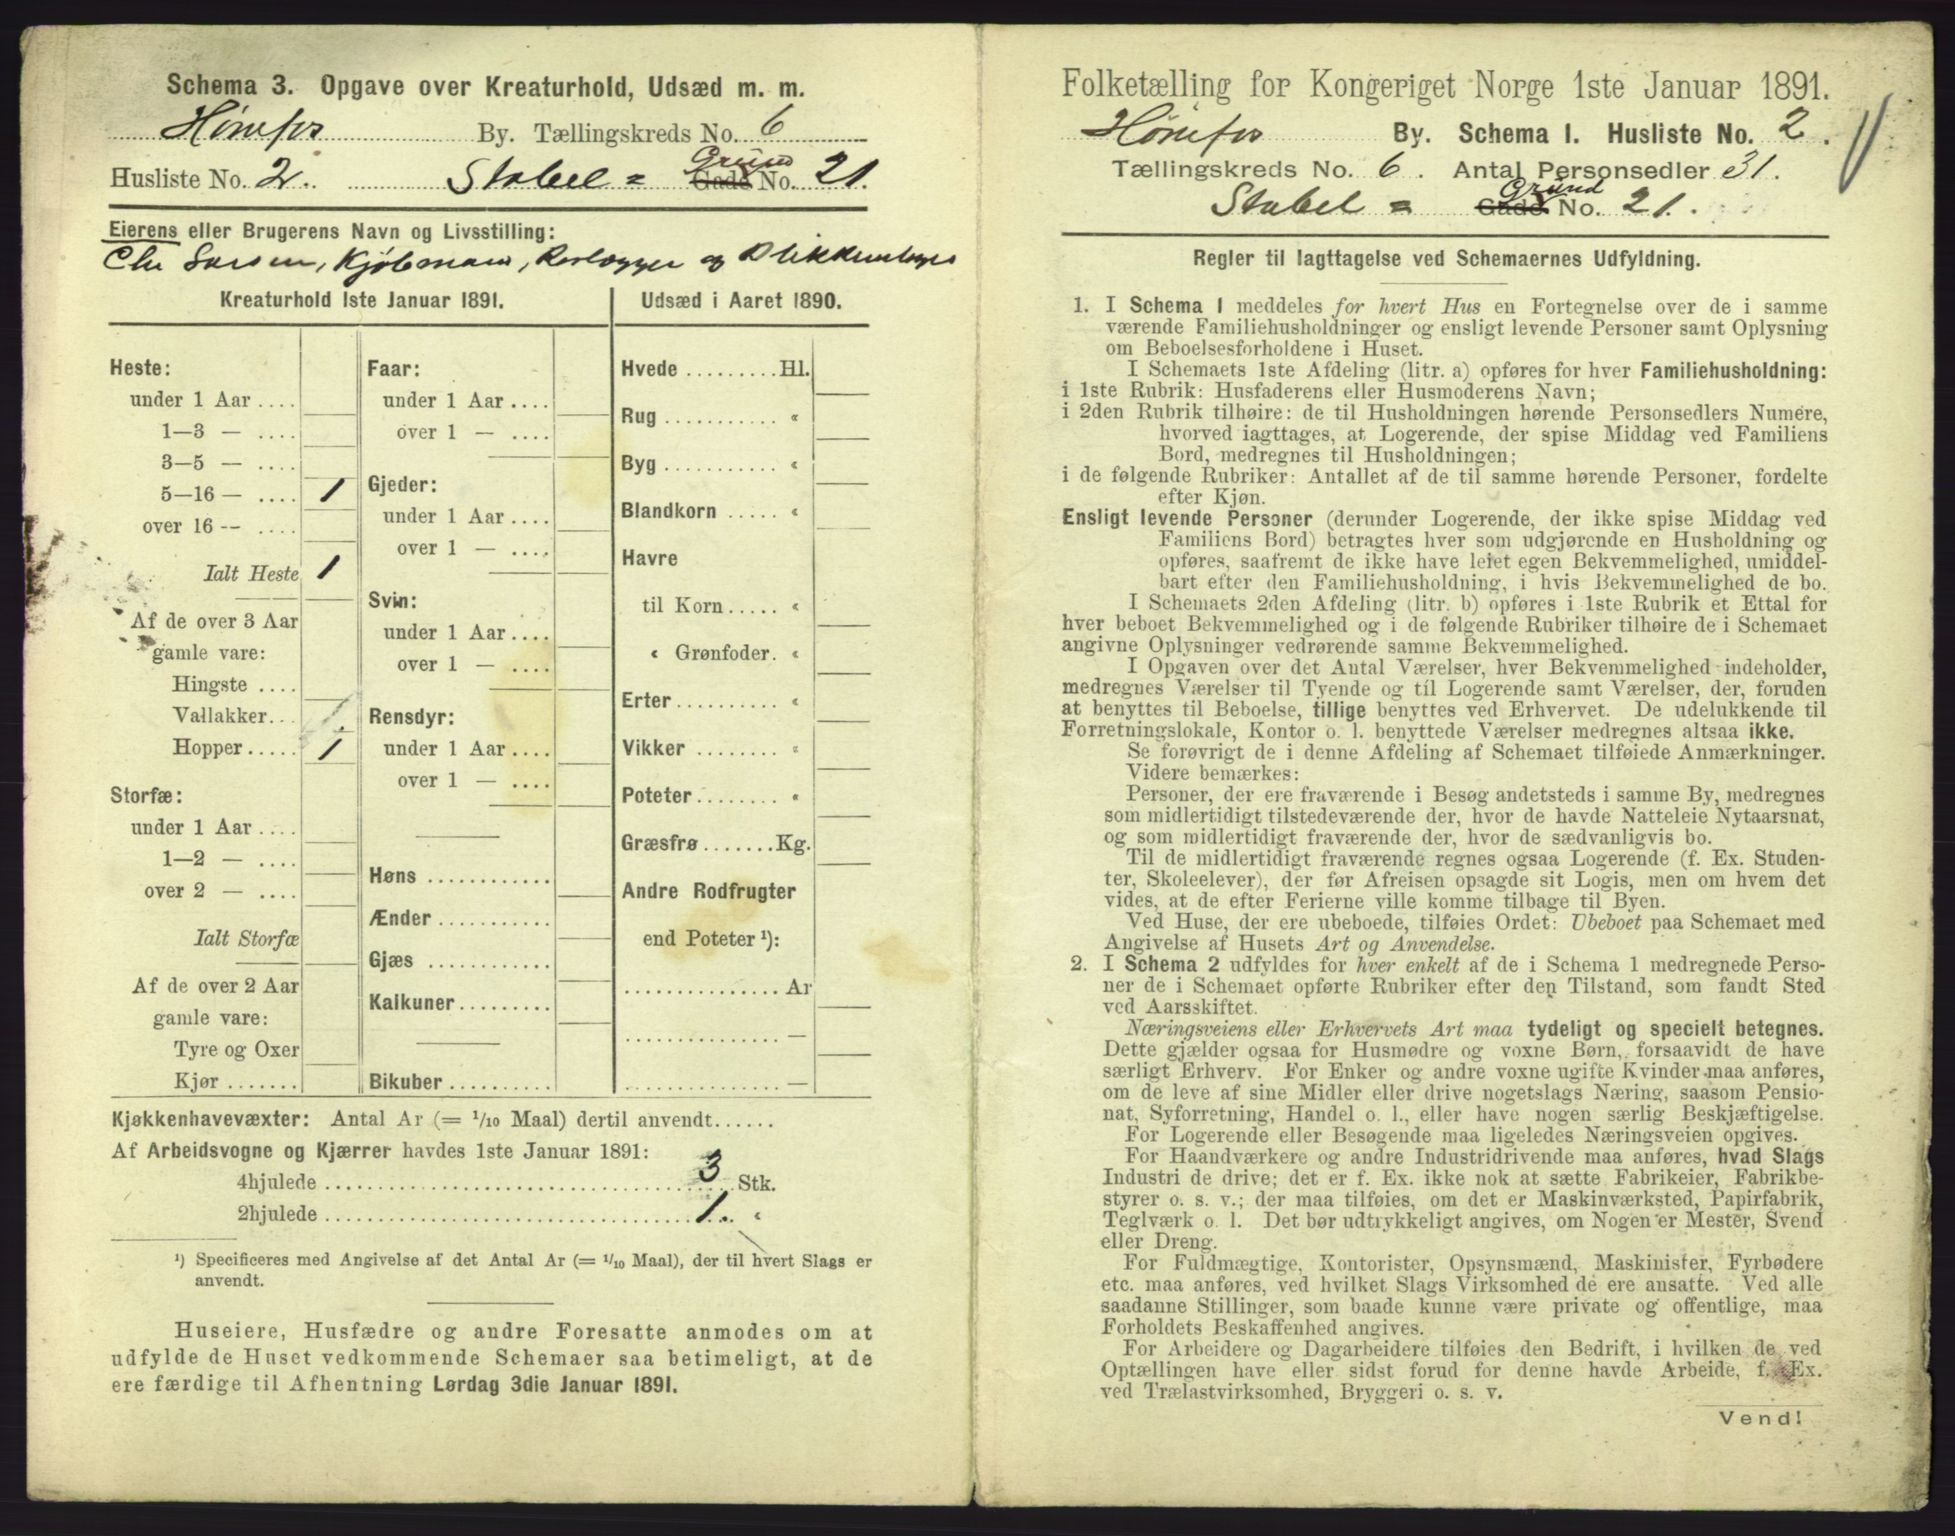 Schema 3. Opgave over Kreaturhold, Udsæd m. m.
Hønefos By. Tællingskreds No. 6
Husliste No. 2. Stabel = Grund Gade No. 21.
Eierens eller Brugerens Navn og Livsstilling:
Chr Larsen, Kjøbmand, og Blikkenslager
Kreaturhold 1ste Januar 1891.
Heste:
under 1 Aar ....
1—3 — ....
3—5 — ....
5—16 — .... 1
over 16 — ....
Ialt Heste 1
Af de over 3 Aar
gamle vare:
Hingste ....
Vallakker...
Hopper ..... 1
Storfæ:
under 1 Aar ....
1—2 — ....
over 2 — ....
Ialt Storfæ
Af de over 2 Aar
gamle vare:
Tyre og Oxer
Kjør .......
Faar:
under 1 Aar ....
over 1 — ....
Gjeder:
under 1 Aar ....
over 1 — ....
Svin:
under 1 Aar ....
over 1 — ....
Rensdyr:
under 1 Aar ....
over 1 — ....
Høns ............
Ænder ...........
Gjæs ............
Kalkuner .........
Bikuber ..........
Udsæd i Aaret 1890.
Hvede .........Hl.
Rug ........... «
Byg ........... «
Blandkorn ..... «
Havre
til Korn ..... «
« Grønfoder. «
Erter .......... «
Vikker ......... «
Poteter ........ «
Græsfrø .......Kg.
Andre Rodfrugter
end Poteter ¹):
............... Ar
............... —
............... —
Kjøkkenhavevæxter: Antal Ar (= 1/10 Maal) dertil anvendt......
Af Arbeidsvogne og Kjærrer havdes 1ste Januar 1891:
4hjulede .......... 3 Stk.
2hjulede .......... 1. «
¹) Specificeres med Angivelse af det Antal Ar (= 1/10 Maal), der til hvert Slags er
anvendt.
Huseiere, Husfædre og andre Foresatte anmodes om at
udfylde de Huset vedkommende Schemaer saa betimeligt, at de
ere færdige til Afhentning Lørdag 3die Januar 1891.
Folketælling for Kongeriget Norge 1ste Januar 1891.
Hønefos By. Schema I. Husliste No. 2.
Tællingskreds No. 6. Antal Personsedler 31.
Stabel = Grund Gade No. 21.
Regler til Iagttagelse ved Schemaernes Udfyldning.
1. I Schema 1 meddeles for hvert Hus en Fortegnelse over de i samme
værende Familiehusholdninger og ensligt levende Personer samt Oplysning
om Beboelsesforholdene i Huset.
I Schemaets 1ste Afdeling (litr. a) opføres for hver Familiehusholdning:
i 1ste Rubrik: Husfaderens eller Husmoderens Navn;
i 2den Rubrik tilhøire: de til Husholdningen hørende Personsedlers Numere,
hvorved iagttages, at Logerende, der spise Middag ved Familiens
Bord, medregnes til Husholdningen;
i de følgende Rubriker: Antallet af de til samme hørende Personer, fordelte
efter Kjøn.
Ensligt levende Personer (derunder Logerende, der ikke spise Middag ved
Familiens Bord) betragtes hver som udgjørende en Husholdning og
opføres, saafremt de ikke have leiet egen Bekvemmelighed, umiddel-
bart efter den Familiehusholdning, i hvis Bekvemmelighed de bo.
I Schemaets 2den Afdeling (litr. b) opføres i 1ste Rubrik et Ettal for
hver beboet Bekvemmelighed og i de følgende Rubriker tilhøire de i Schemaet
angivne Oplysninger vedrørende samme Bekvemmelighed.
I Opgaven over det Antal Værelser, hver Bekvemmelighed indeholder,
medregnes Værelser til Tyende og til Logerende samt Værelser, der, foruden
at benyttes til Beboelse, tillige benyttes ved Erhvervet. De udelukkende til
Forretningslokale, Kontor o. l. benyttede Værelser medregnes altsaa ikke.
Se forøvrigt de i denne Afdeling af Schemaet tilføiede Anmærkninger.
Videre bemærkes:
Personer, der ere fraværende i Besøg andetsteds i samme By, medregnes
som midlertidigt tilstedeværende der, hvor de havde Natteleie Nytaarsnat,
og som midlertidigt fraværende der, hvor de sædvanligvis bo.
Til de midlertidigt fraværende regnes ogsaa Logerende (f. Ex. Studen-
ter, Skoleelever), der før Afreisen opsagde sit Logis, men om hvem det
vides, at de efter Ferierne ville komme tilbage til Byen.
Ved Huse, der ere ubeboede, tilføies Ordet: Ubeboet paa Schemaet med
Angivelse af Husets Art og Anvendelse.
2. I Schema 2 udfyldes for hver enkelt af de i Schema 1 medregnede Perso-
ner de i Schemaet opførte Rubriker efter den Tilstand, som fandt Sted
ved Aarsskiftet.
Næringsveiens eller Erhvervets Art maa tydeligt og specielt betegnes.
Dette gjælder ogsaa for Husmødre og voxne Børn, forsaavidt de have
særligt Erhverv. For Enker og andre voxne ugifte Kvinder maa anføres,
om de leve af sine Midler eller drive nogetslags Næring, saasom Pensio-
nat, Syforretning, Handel o. l., eller have nogen særlig Beskjæftigelse.
For Logerende eller Besøgende maa ligeledes Næringsveien opgives.
For Haandværkere og andre Industridrivende maa anføres, hvad Slags
Industri de drive; det er f. Ex. ikke nok at sætte Fabrikeier, Fabrikbe-
styrer o. s. v.; der maa tilføies, om det er Maskinværksted, Papirfabrik,
Teglværk o. l. Det bør udtrykkeligt angives, om Nogen er Mester, Svend
eller Dreng.
For Fuldmægtige, Kontorister, Opsynsmænd, Maskinister, Fyrbødere
etc. maa anføres, ved hvilket Slags Virksomhed de ere ansatte. Ved alle
saadanne Stillinger, som baade kunne være private og offentlige, maa
Forholdets Beskaffenhed angives.
For Arbeidere og Dagarbeidere tilføies den Bedrift, i hvilken de ved
Optællingen have eller sidst forud for denne havde Arbeide, f. Ex.
ved Trælastvirksomhed, Bryggeri o. s. v.
Vend!